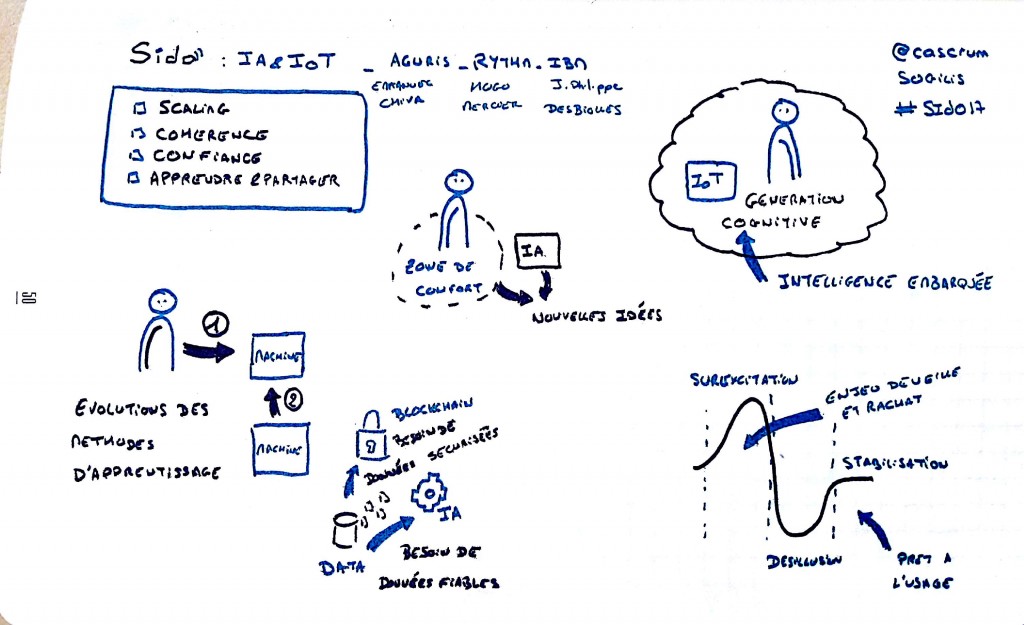 Sido" : IA & IoT _ AGURIS _ RYTHM . IBM
EMMANUEL CHIVA
HUGO MERCIER
J. Philippe DESBIOLLES
@cascrum
SOGILIS
# SIDO17
SCALING
COHERENCE
CONFIANCE
APPRENDRE & PARTAGER
IoT
GENERATION
COGNITIVE
INTELLIGENCE EMBARQUÉE
ZONE DE
CONFORT
IA
NOUVELLES IDÉES
1
MACHINE
2
MACHINE
EVOLUTIONS DES
METHODES
D'APPRENTISSAGE
BLOCKCHAIN
BESOIN DE
DONNÉES SÉCURISÉES
IA
DATA
BESOIN DE
DONNÉES FIABLES
SUREXCITATION
ENJEU DE VEILLE
ET RACHAT
STABILISATION
DESILLUSION
PRET A
L'USAGE